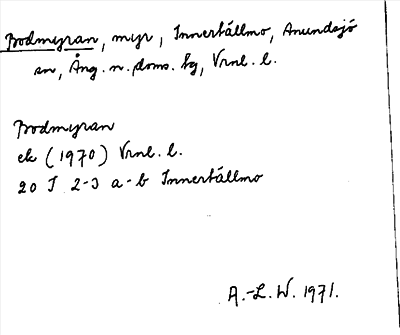 Bodmyran, myr, Innertällmo, Anundsjö
sn, Ång. n. doms. fg, Vrnl. l.
Bodmyran
ek (1970) Vrnl. l.
20 I 2-3 a-b Innertällmo
A.-L. W. 1971.